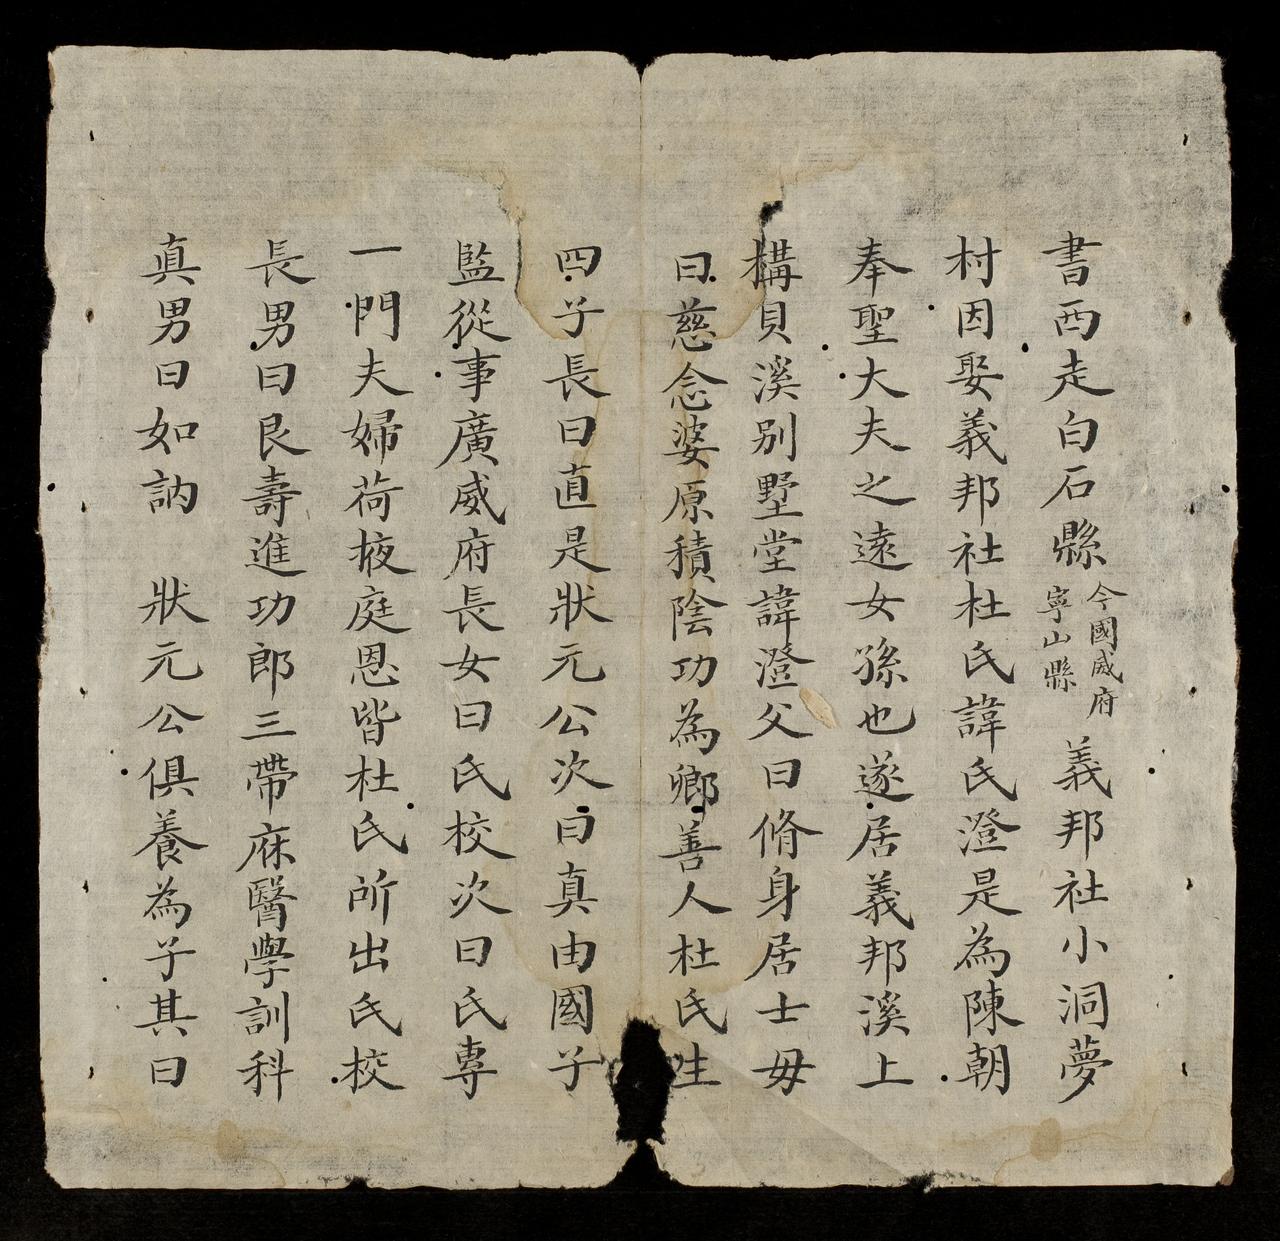 書西走白石縣今國威府寧山縣義邦社小洞夢
村因娶義邦社杜氏諱氏澄是為陳朝
奉聖大夫之遠女孫也遂居義邦溪上
構貝溪別墅堂諱澄父曰脩身居士毋
曰慈念婆原積陰功為鄉善人杜氏生
四子長曰直是狀元公次曰真由國子
監從事廣威府長女曰氏校次曰氏專
一門夫婦荷掖庭恩皆杜氏所出氏校
長男曰艮壽進功郎三帶府醫學訓科
真男曰如訥 狀元公俱養為子其曰